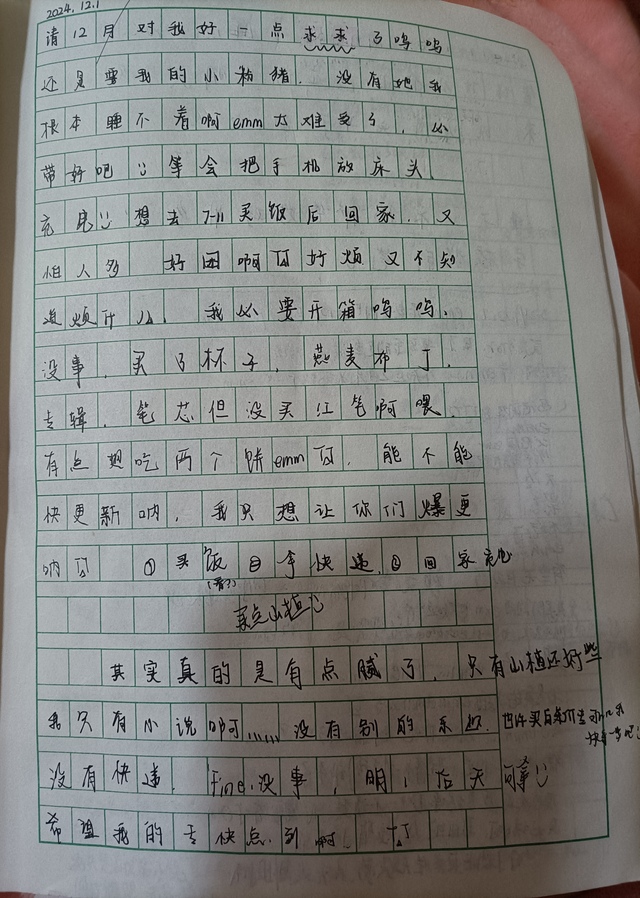 2024.12.1
请12月对我好一点求求了呜呜
还是要我的小粉猪.没有她我
根本睡不着啊emm太难受了,必
带好吧:)等会把手机放床头
充电:)想去7-11买饭后回家.又
怕人多 好困啊 好烦又不知
道烦什么.我必要开箱呜呜.
没事.买了杯子,燕麦布丁.
专辑.笔芯但没买红笔啊喂.
有点想吃两个饼emm .能不能
快更新呐.我只想让你们爆更
呐 ①买饭 拿快递.②回家充电
(看?)
买点山楂:)
其实真的是有点腻了.只有山楂还好些
我只有小说啊啊,,,,,没有别的东西.
没有快递.Fine.没事,明,后天可拿:)
希望我的专快点到啊.